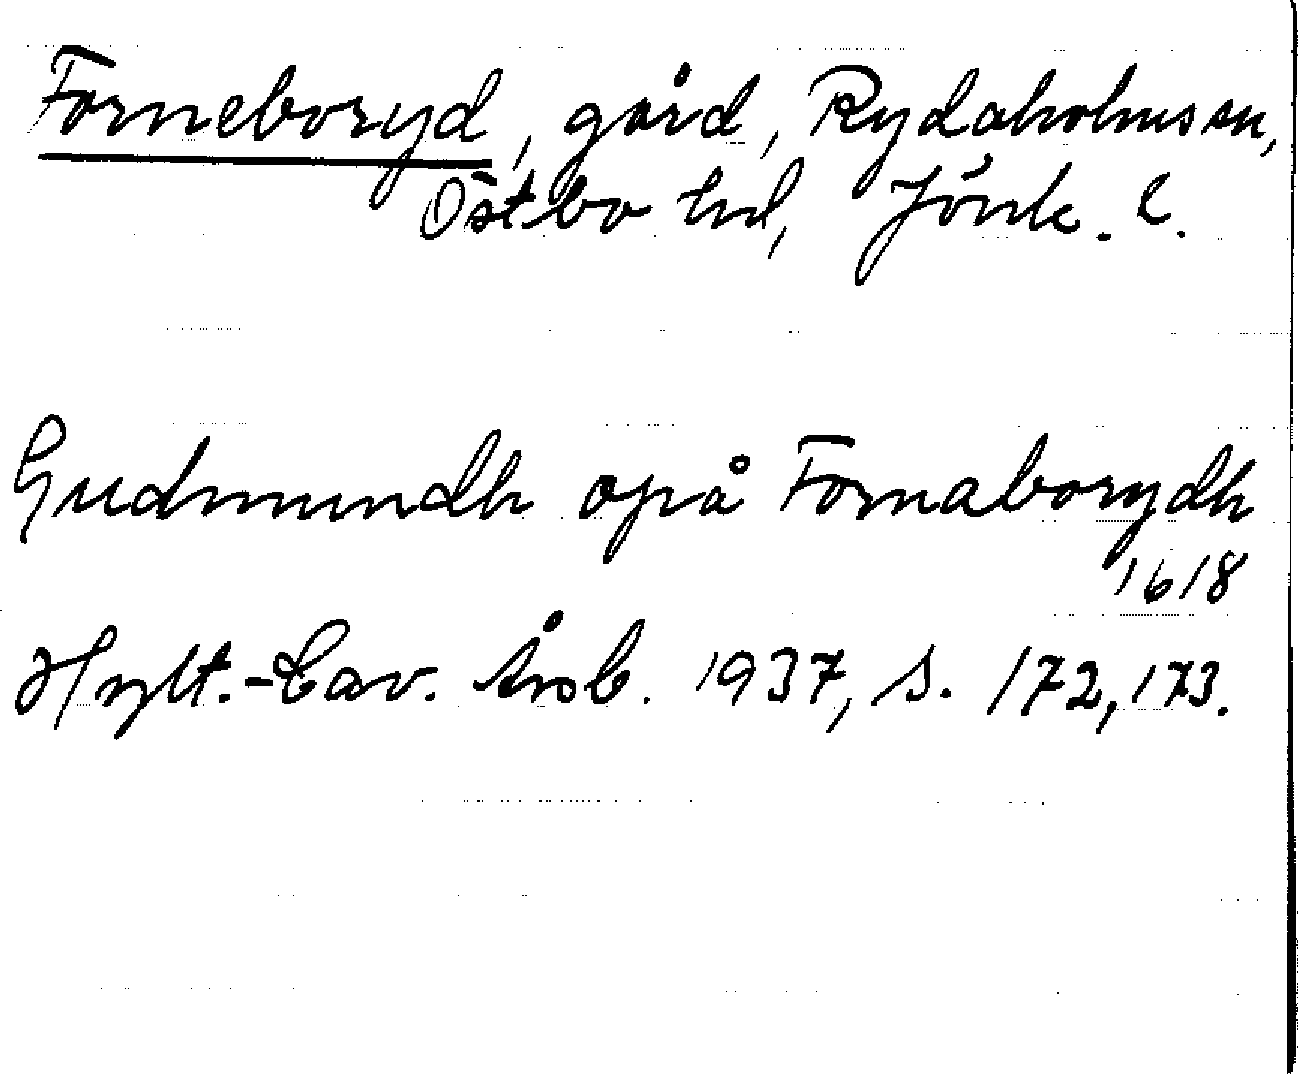 Forneboryd, gård, Rydaholms sn,
Östbo hd, Jönk. l.
Gudmundh opå Fornaborydh
1618
Hylt.-Cav. Årsb. 1937, s. 172, 173.